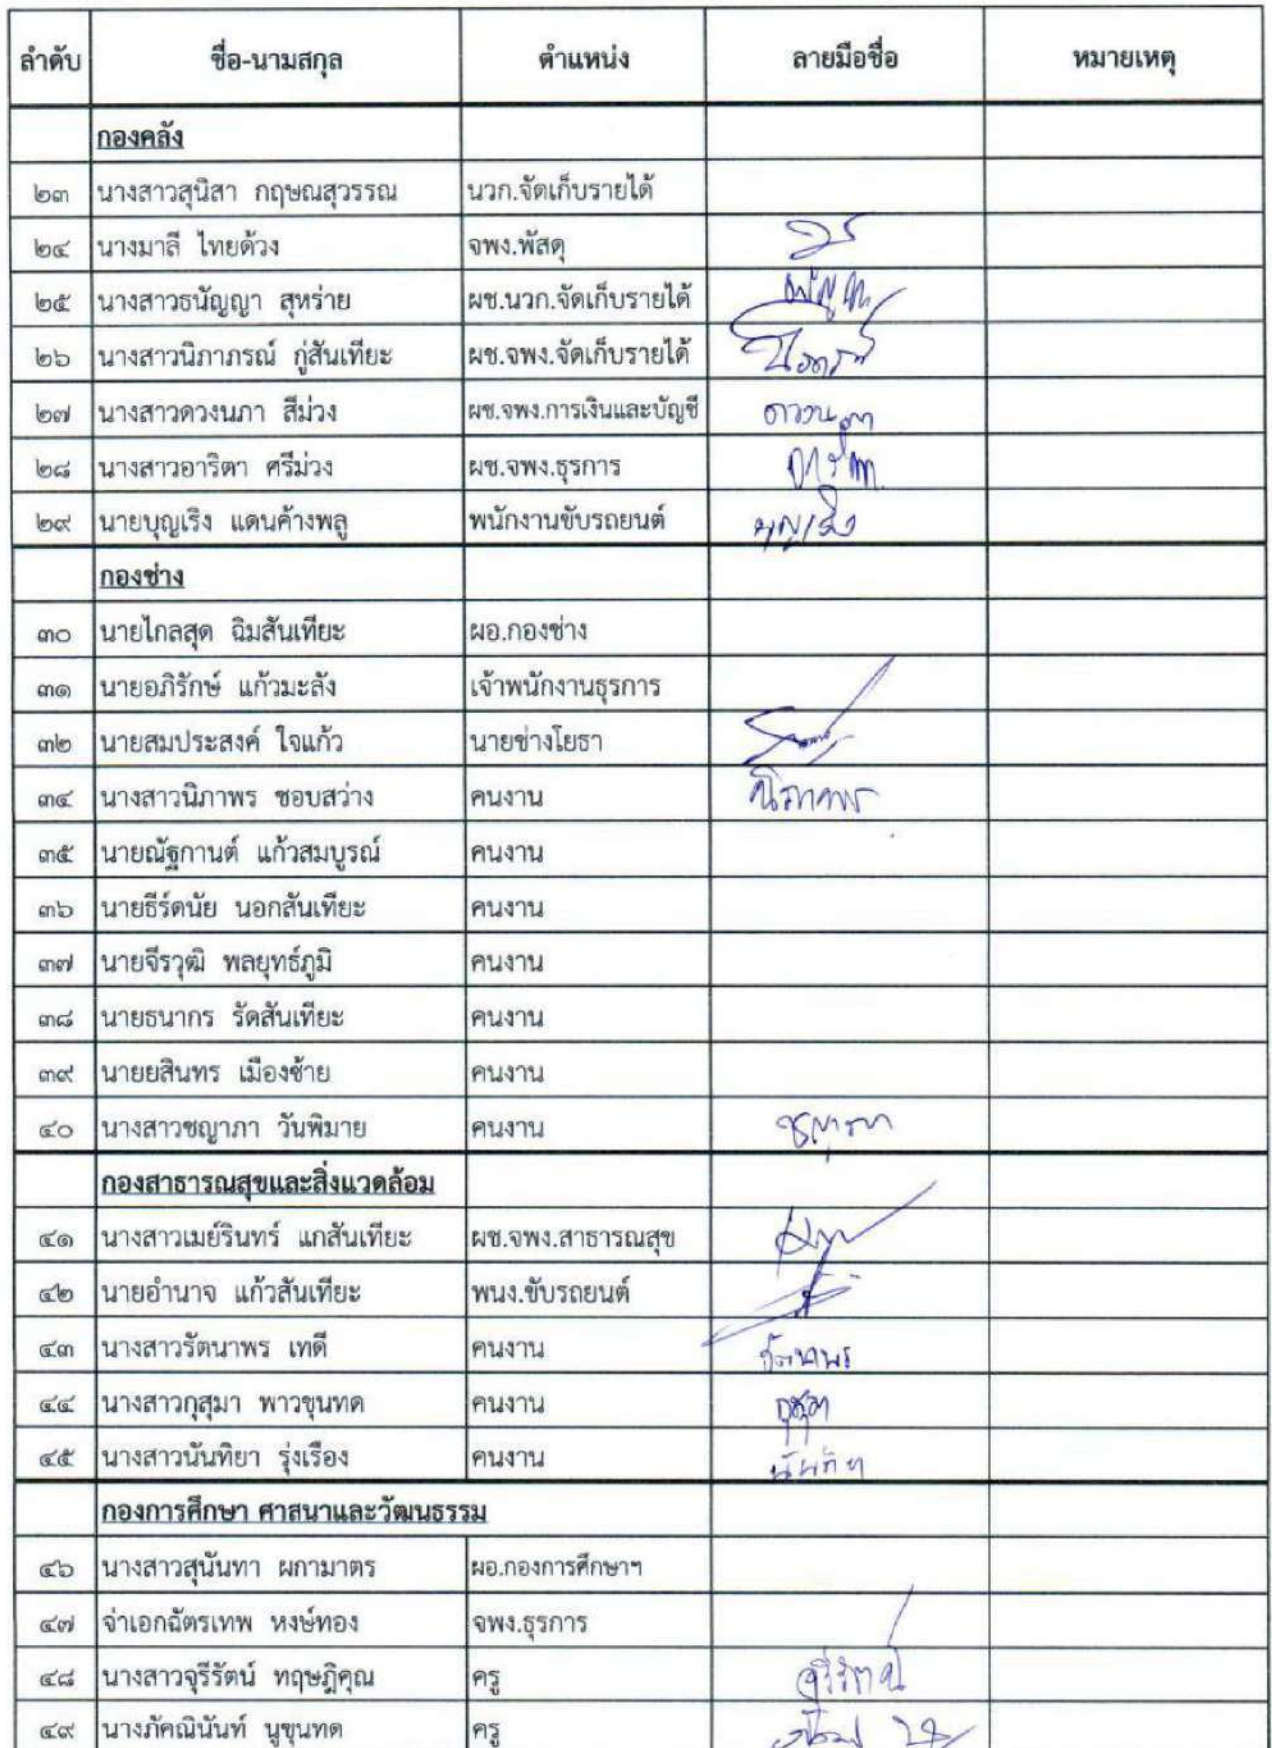 ลำดับ ชื่อ-นามสกุล ตำแหน่ง ลายมือชื่อ หมายเหตุ
กองคลัง
๒๓ นางสาวสุนิสา กฤษณสุวรรณ นวก.จัดเก็บรายได้
๒๔ นางมาลี ไทยด้วง จพง.พัสดุ
๒๕ นางสาวธนัญญา สุหร่าย ผช.นวก.จัดเก็บรายได้
๒๖ นางสาวนิภาภรณ์ กู่สันเทียะ ผช.จพง.จัดเก็บรายได้
๒๗ นางสาวดวงนภา สีม่วง ผช.จพง.การเงินและบัญชี ดวงนภา
๒๘ นางสาวอาริตา ศรีม่วง ผช.จพง.ธุรการ อาริตา
๒๙ นายบุญเริง แดนค้างพลู พนักงานขับรถยนต์ บุญเริง
กองช่าง
๓๐ นายไกลสุด ฉิมสันเทียะ ผอ.กองช่าง
๓๑ นายอภิรักษ์ แก้วมะลัง เจ้าพนักงานธุรการ
๓๒ นายสมประสงค์ ใจแก้ว นายช่างโยธา
๓๔ นางสาวนิภาพร ชอบสว่าง คนงาน นิภาพร
๓๕ นายณัฐกานต์ แก้วสมบูรณ์ คนงาน
๓๖ นายธีร์ดนัย นอกสันเทียะ คนงาน
๓๗ นายจีรวุฒิ พลยุทธ์ภูมิ คนงาน
๓๘ นายธนากร รัดสันเทียะ คนงาน
๓๙ นายยสินทร เมืองซ้าย คนงาน
๔๐ นางสาวชญาภา วันพิมาย คนงาน ชญาภา
กองสาธารณสุขและสิ่งแวดล้อม
๔๑ นางสาวเมย์รินทร์ แกสันเทียะ ผช.จพง.สาธารณสุข
๔๒ นายอำนาจ แก้วสันเทียะ พนง.ขับรถยนต์
๔๓ นางสาวรัตนาพร เทดี คนงาน รัตนาพร
๔๔ นางสาวกุสุมา พาวขุนทด คนงาน กุสุมา
๔๕ นางสาวนันทิยา รุ่งเรือง คนงาน นันทิยา
กองการศึกษา ศาสนาและวัฒนธรรม
๔๖ นางสาวสุนันทา ผกามาตร ผอ.กองการศึกษาฯ
๔๗ จ่าเอกฉัตรเทพ หงษ์ทอง จพง.ธุรการ
๔๘ นางสาวจุรีรัตน์ ทฤษฎิคุณ ครู จุรีรัตน์
๔๙ นางภัคณินันท์ นูขุนทด ครู